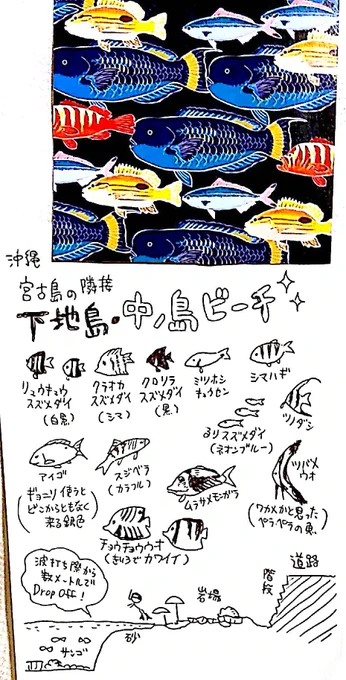 沖縄
宮古島の隣接
下地島・中ノ島ビーチ
リュウキュウ
スズメダイ
(白黒)
クラオカ
スズメダイ
(シマ)
クロソラ
スズメダイ
(黒)
ミツボシ
キュウセン
シマハギ
ルリスズメダイ
(ネオンブルー)
ツノダシ
アイゴ
(ギョニソ使うと
どこからともなく
来る銀色)
スジベラ
(カラフル)
ムラサメモンガラ
ツバメ
ウオ
(ワカメかと思った
ペラペラの魚)
チョウチョウウオ
(きいろでカワイイ)
波打ち際から
数メートルで
Drop Off!
サンゴ
砂
岩場
階段
道路